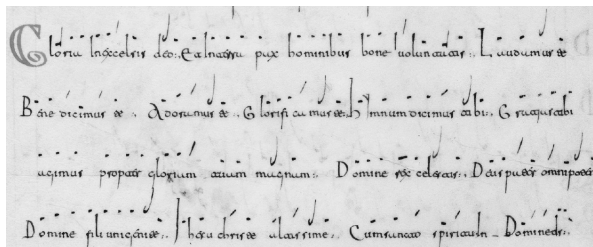 Gloria Inexcelsis deo. Et Interra pax hominibus bone voluntatis. Laudamus te
Benedicimus te. Adoramus te. Glorificamus te. hymnum dicimus tibi. Gratias tibi
agimus propter gloriam tuam magnam. Domine rex celestis. Deus pater omnipotens
Domine fili unigenite. Ihesu christe altissime. Cum sancto spiritu. Domine deus.